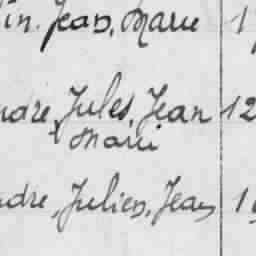 in. Jean, Marie 1
ndre, Jules, Jean 12
Marie
ndre, Julien, Jean 1